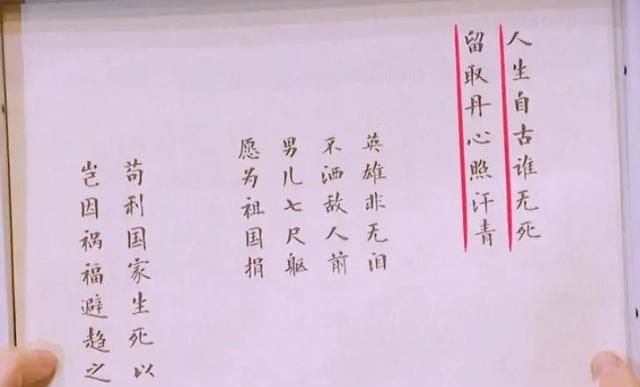 人生自古谁无死
留取丹心照汗青
英雄非无泪
不洒敌人前
男儿七尺躯
愿为祖国捐
苟利国家生死以
岂因祸福避趋之